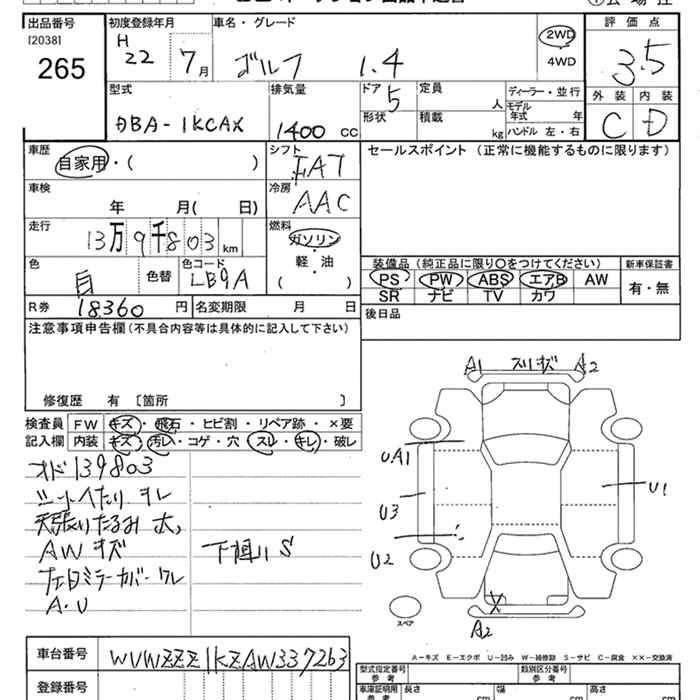 出品番号 初度登録年月 車名・グレード 評価点
[2038]
265
H 22 7月 ゴルフ 1.4 2WD 4WD 3.5
型式 排気量 ドア 定員 ディーラー・並行 外装 内装
モデル年式 年
DBA-1KCAX 1400 CC 5 人 C D
形状 積載 kg ハンドル 左・右
車歴 シフト セールスポイント (正常に機能するものに限ります)
自家用・( ) FAT
車検 冷房
年 月( 日) AAC
走行 燃料
13万9千803 km ガソリン・軽・油
( )
色 色替 色コード 装備品(純正品に限り○をつけてください) 新車保証書
LB9A PS PW ABS エアB AW 有・無
SR ナビ TV カワ
R券 18360 円 名変期限 月 日
後日品
注意事項申告欄(不具合内容等は具体的に記入して下さい)
修復歴 有 〔箇所 〕
検査員記入欄 FW キズ・飛石・ヒビ割・リペア跡・×要
内装 キズ・汚れ・コゲ・穴・スレ・キレ・破レ
オド139803
シートへたり スレ
天張りたるみ 大
AWキズ 下廻りS
左ドミラーカバーワレ
A・U
A1 スリキズ A2
UA1
U3
U2
U1
X
A2
スペア
A-キズ E-エクボ U-凹み W-補修跡 S-サビ C-腐食 ××-交換済
車台番号 WVWZZZ1KZAW337263
型式指定番号 参考 類別区分番号 参考
登録番号
車庫証明用 参考 長さ cm 幅 cm 高さ cm